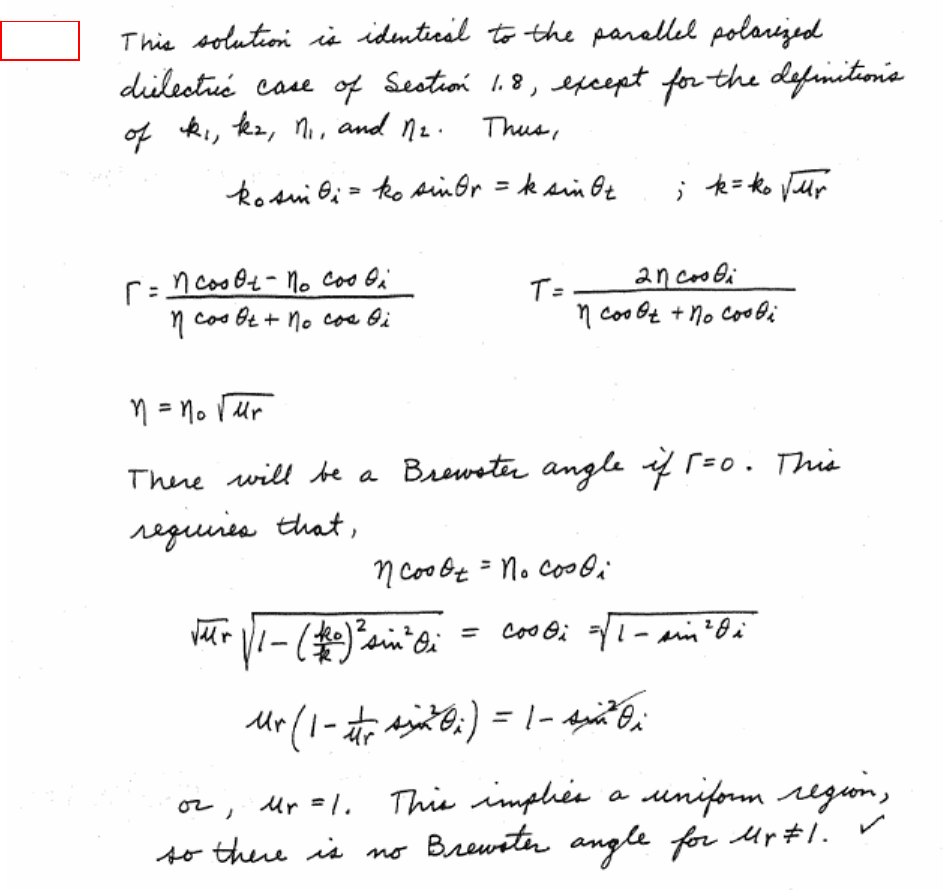 This solution is identical to the parallel polarized
dielectric case of Section 1.8, except for the definitions
of k₁, k₂, η₁, and η₂. Thus,
k₀ sin θᵢ = k₀ sin θr = k sin θt ; k = k₀ √μr
Γ = (η cos θt - η₀ cos θᵢ) / (η cos θt + η₀ cos θᵢ) T = 2η cos θᵢ / (η cos θt + η₀ cos θᵢ)
η = η₀ √μr
There will be a Brewster angle if Γ=0. This
requires that,
η cos θt = η₀ cos θᵢ
√μr √(1 - (k₀/k)² sin² θᵢ) = cos θᵢ = √(1 - sin² θᵢ)
μr (1 - 1/μr sin² θᵢ) = 1 - sin² θᵢ
or, μr = 1. This implies a uniform region,
so there is no Brewster angle for μr ≠ 1. ✓